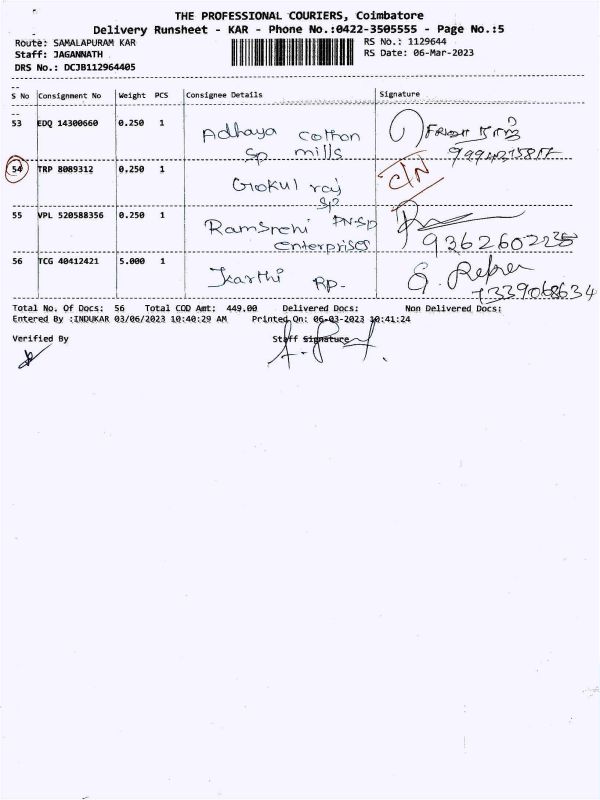 THE PROFESSIONAL COURIERS, Coimbatore
Delivery Runsheet - KAR - Phone No.:0422-3505555 - Page No.:5
Route: SAMALAPURAM KAR
RS No.: 1129644
Staff: JAGANNATH
RS Date: 06-Mar-2023
DRS No.: DCJB112964405
S No Consignment No Weight PCS Consignee Details Signature
53 EDQ 14300660 0.250 1 Adhaya cotton
sp mills
54 TRP 8089312 0.250 1 Gokul raj C/N
sp
55 VPL 520588356 0.250 1 Ramsrehi PN-SP
enterprises 9362602235
56 TCG 40412421 5.000 1 Karthi RP-
7339068634
Total No. Of Docs: 56 Total COD Amt: 449.00 Delivered Docs: Non Delivered Docs:
Entered By :INDUKAR 03/06/2023 10:40:29 AM Printed On: 06-03-2023 10:41:24
Verified By Staff Signature